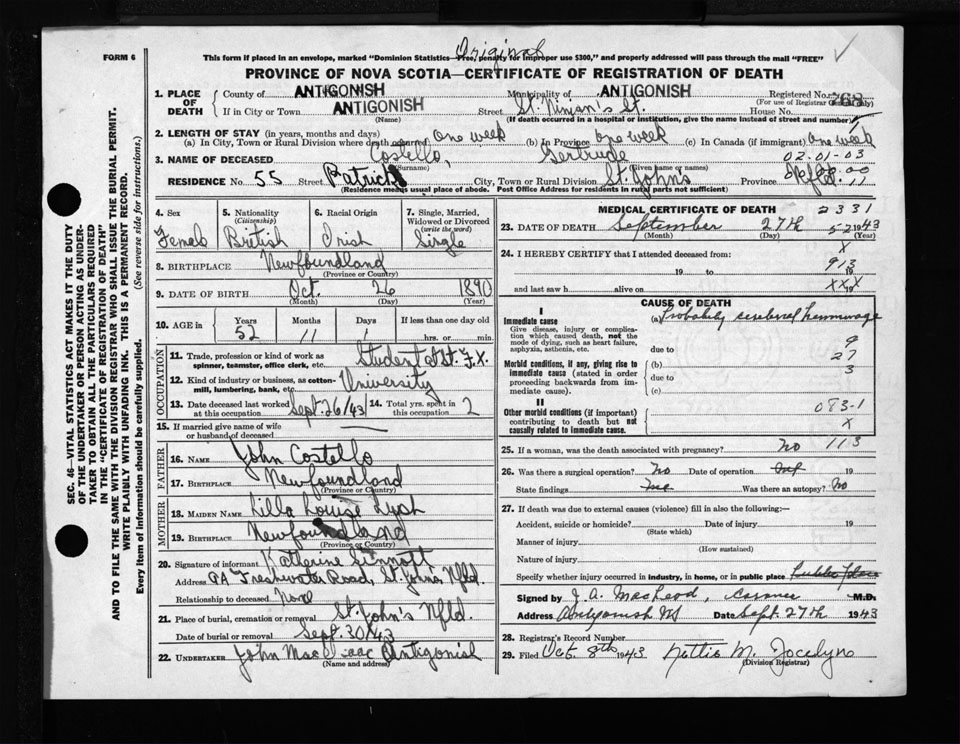 Original
FORM 6
This form if placed in an envelope, marked "Dominion Statistics—Free, penalty for improper use $300," and properly addressed will pass through the mail "FREE"
PROVINCE OF NOVA SCOTIA—CERTIFICATE OF REGISTRATION OF DEATH
SEC. 46—VITAL STATISTICS ACT MAKES IT THE DUTY
OF THE UNDERTAKER OR PERSON ACTING AS UNDER-
TAKER TO OBTAIN ALL THE PARTICULARS REQUIRED
IN THE "CERTIFICATE OF REGISTRATION OF DEATH"
AND TO FILE THE SAME WITH THE DIVISION REGISTRAR WHO SHALL ISSUE THE BURIAL PERMIT.
WRITE PLAINLY WITH UNFADING INK. THIS IS A PERMANENT RECORD.
Every item of information should be carefully supplied. (See reverse side for instructions.)
1. PLACE OF DEATH
County of ANTIGONISH Municipality of ANTIGONISH Registered No.
(For use of Registrar General only)
If in City or Town ANTIGONISH Street St. Ninian's St. House No.
(Name) (If death occurred in a hospital or institution, give the name instead of street and number)
2. LENGTH OF STAY (in years, months and days)
(a) In City, Town or Rural Division where death occurred one week (b) In Province one week (c) In Canada (if immigrant) one week
3. NAME OF DECEASED Costello, Gertrude 02-01-03
(Surname) (Given name or names)
RESIDENCE No. 55 Street Patrick City, Town or Rural Division St. Johns Province Nfld.
(Residence means usual place of abode. Post Office Address for residents in rural parts not sufficient)
4. Sex Female
5. Nationality (Citizenship) British
6. Racial Origin Irish
7. Single, Married, Widowed or Divorced (write the word) Single
8. BIRTHPLACE Newfoundland
(Province or Country)
9. DATE OF BIRTH Oct. 26 1890
(Month) (Day) (Year)
10. AGE in Years 52 Months 11 Days 1 If less than one day old
hrs. or min.
OCCUPATION
11. Trade, profession or kind of work as spinner, teamster, office clerk, etc. Student at St. F.X.
12. Kind of industry or business, as cotton-mill, lumbering, bank, etc. University
13. Date deceased last worked at this occupation Sept. 26/43
14. Total yrs. spent in this occupation 2
15. If married give name of wife or husband of deceased
FATHER
16. NAME John Costello
17. BIRTHPLACE Newfoundland
(Province or Country)
MOTHER
18. MAIDEN NAME Lilla Louise
19. BIRTHPLACE Newfoundland
(Province or Country)
20. Signature of informant Katherine Sinnott
Address Freshwater Road, St. Johns Nfld.
Relationship to deceased None
21. Place of burial, cremation or removal St. John's Nfld.
Date of burial or removal Sept. 30/43
22. UNDERTAKER John MacIsaac Antigonish
(Name and address)
MEDICAL CERTIFICATE OF DEATH 2331
23. DATE OF DEATH September 27th 1943
(Month) (Day) (Year)
24. I HEREBY CERTIFY that I attended deceased from:
19 to 19
and last saw h alive on 19
913
XXX
CAUSE OF DEATH
I
Immediate cause (a) Probably cerebral hemmorage
Give disease, injury or complication which caused death, not the mode of dying, such as heart failure, asphyxia, asthenia, etc.
due to
Morbid conditions, if any, giving rise to immediate cause (stated in order proceeding backwards from immediate cause).
(b)
due to
(c)
9
27
3
II
Other morbid conditions (if important) contributing to death but not causally related to immediate cause.
083-1
X
25. If a woman, was the death associated with pregnancy? no 113
26. Was there a surgical operation? No Date of operation 19
State findings Was there an autopsy? No
27. If death was due to external causes (violence) fill in also the following:—
Accident, suicide or homicide? Date of injury 19
(State which)
Manner of injury
(How sustained)
Nature of injury
Specify whether injury occurred in industry, in home, or in public place
Signed by J. A. MacLeod, coroner M.D.
Address Antigonish NS Date Sept. 27th 1943
28. Registrar's Record Number
29. Filed Oct. 8th 1943 Nettie M. Jocelyn
(Division Registrar)